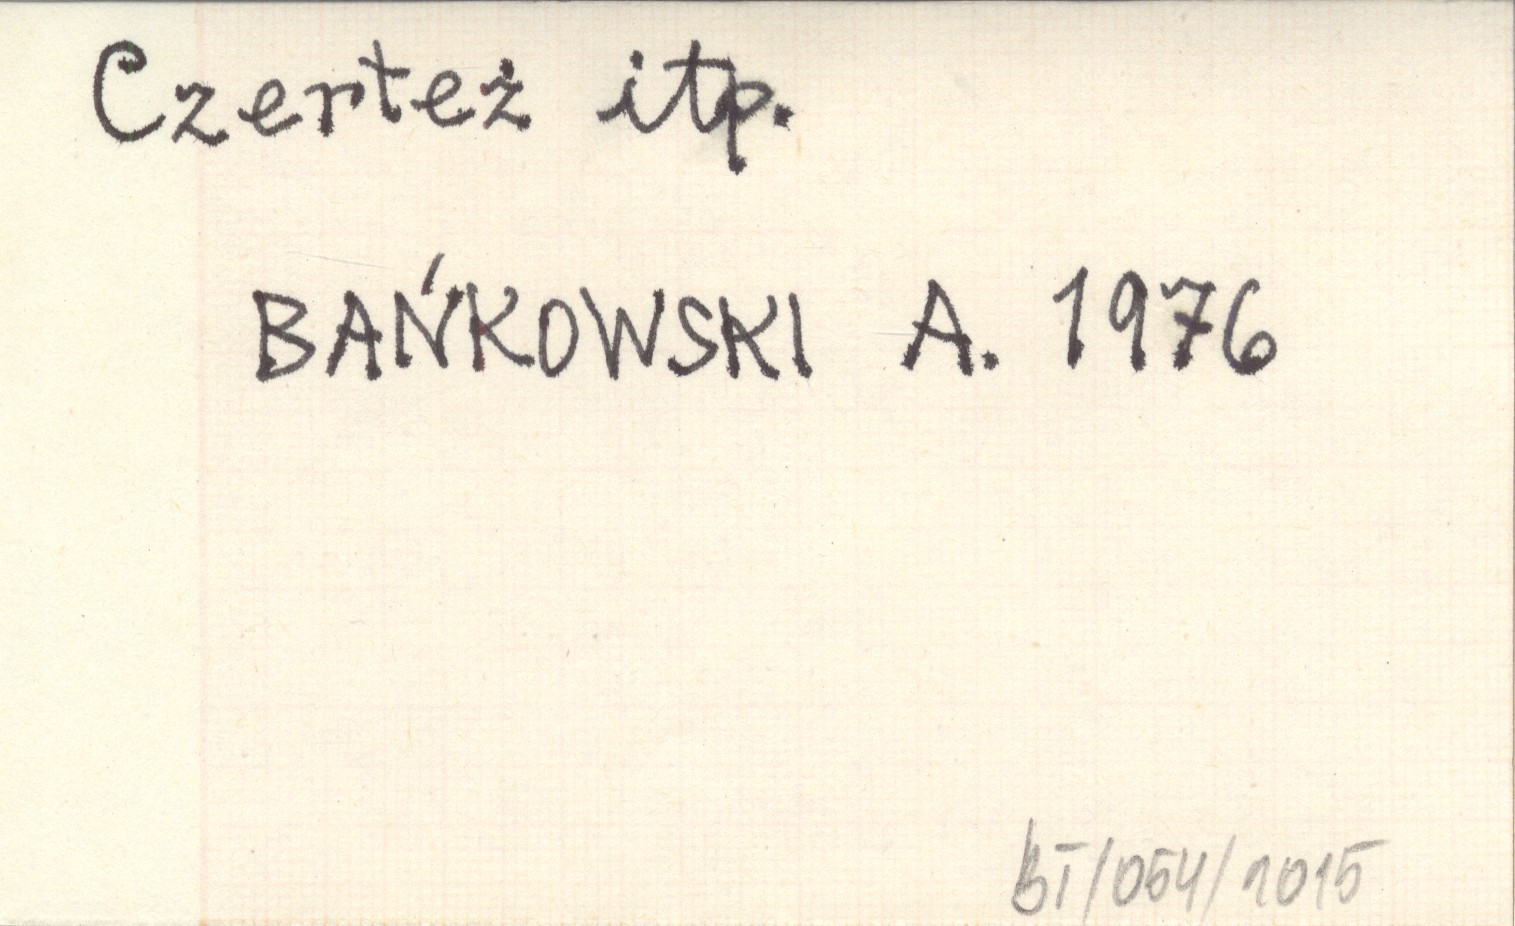 Czerteż itp.
BAŃKOWSKI A. 1976
BT/054/2015